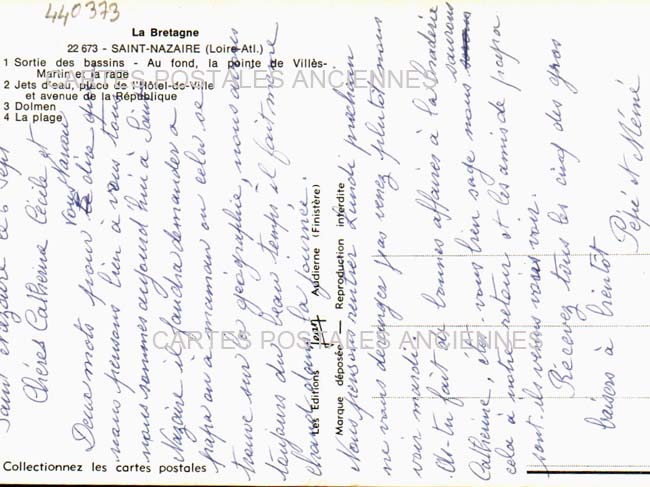 440373
La Bretagne
22 673 - SAINT-NAZAIRE (Loire-Atl.)
1 Sortie des bassins - Au fond, la pointe de Villès-
Martin et la rade
2 Jets d'eau, place de l'Hôtel-de-Ville
et avenue de la République
3 Dolmen
4 La plage
CARTES POSTALES ANCIENNES
Saint Nazaire ce 6 Sept
Chères Catherine Cécile et
Deux mots pour vous dire que
nous pensons bien à vous tous
nous sommes aujourd'hui à Saint
Nazaire il faudra demander a
papa ou a maman ou cela se
trouve sur la géographie, nous avons
toujours du beau temps il fait même
chaud dans la journée.
Nous pensons rentrer Lundi prochain
ne vous déranger pas venez plutôt nous
voir mardi.
As-tu fait de bonnes affaires à la braderie
Catherine, étes-vous bien sage nous saurons
cela à notre retour et les amis de papa
sont ils venus vous voir.
Recevez tous les cinq des gros
baisers à bientôt
Pépé et Mémé
Les Editions Jos Audierne (Finistère)
Marque déposée — Reproduction interdite
CARTES POSTALES ANCIENNES
Collectionnez les cartes postales